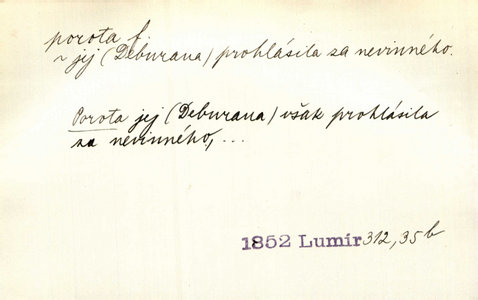 porota f.
~ jej (Deburana) prohlásila za nevinného.
Porota jej (Deburana) však prohlásila
za nevinného, ...
1852 Lumír 312, 35 b